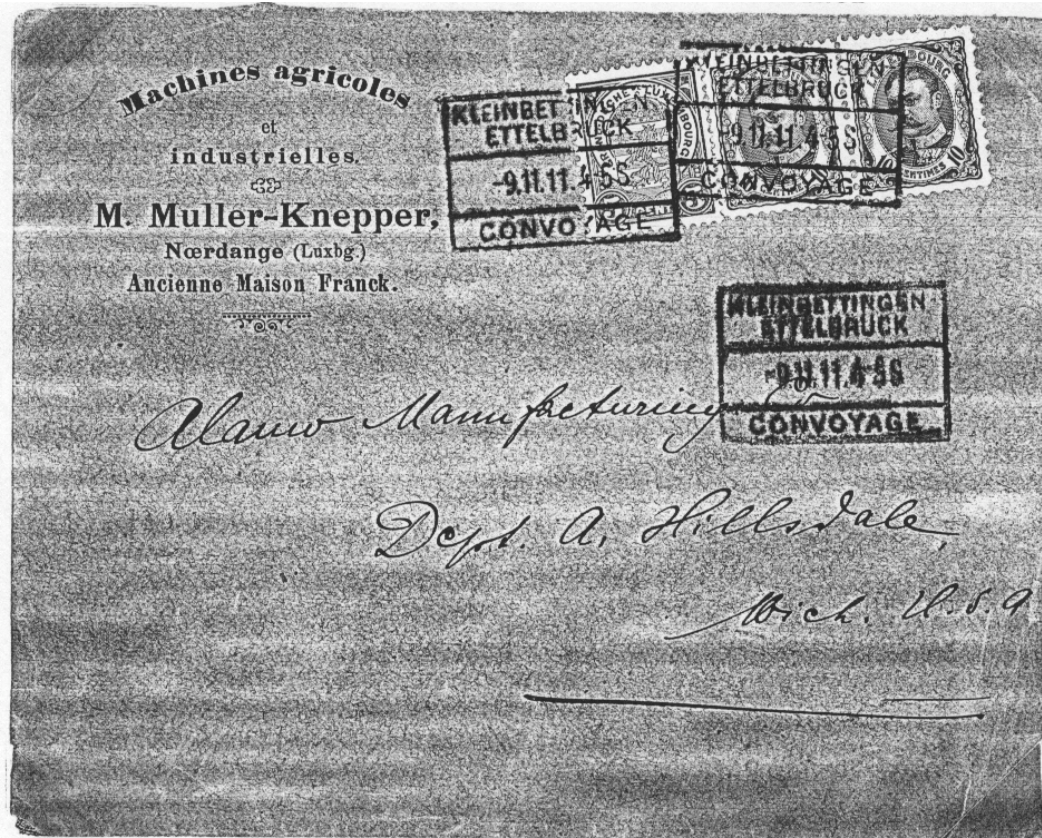 Machines agricoles
et
industrielles.
M. Muller-Knepper,
Nœrdange (Luxbg.)
Ancienne Maison Franck.
KLEINBETTINGEN
ETTELBRUCK
-9.11.11.4-5S
CONVOYAGE
KLEINBETTINGEN
ETTELBRUCK
-9.11.11.4-5S
CONVOYAGE
10 CENTIMES 10
KLEINBETTINGEN
ETTELBRUCK
-9.11.11.4-5S
CONVOYAGE
Alamo Manufacturing Co.
Dept. A. Hillsdale,
Mich. U.S.A